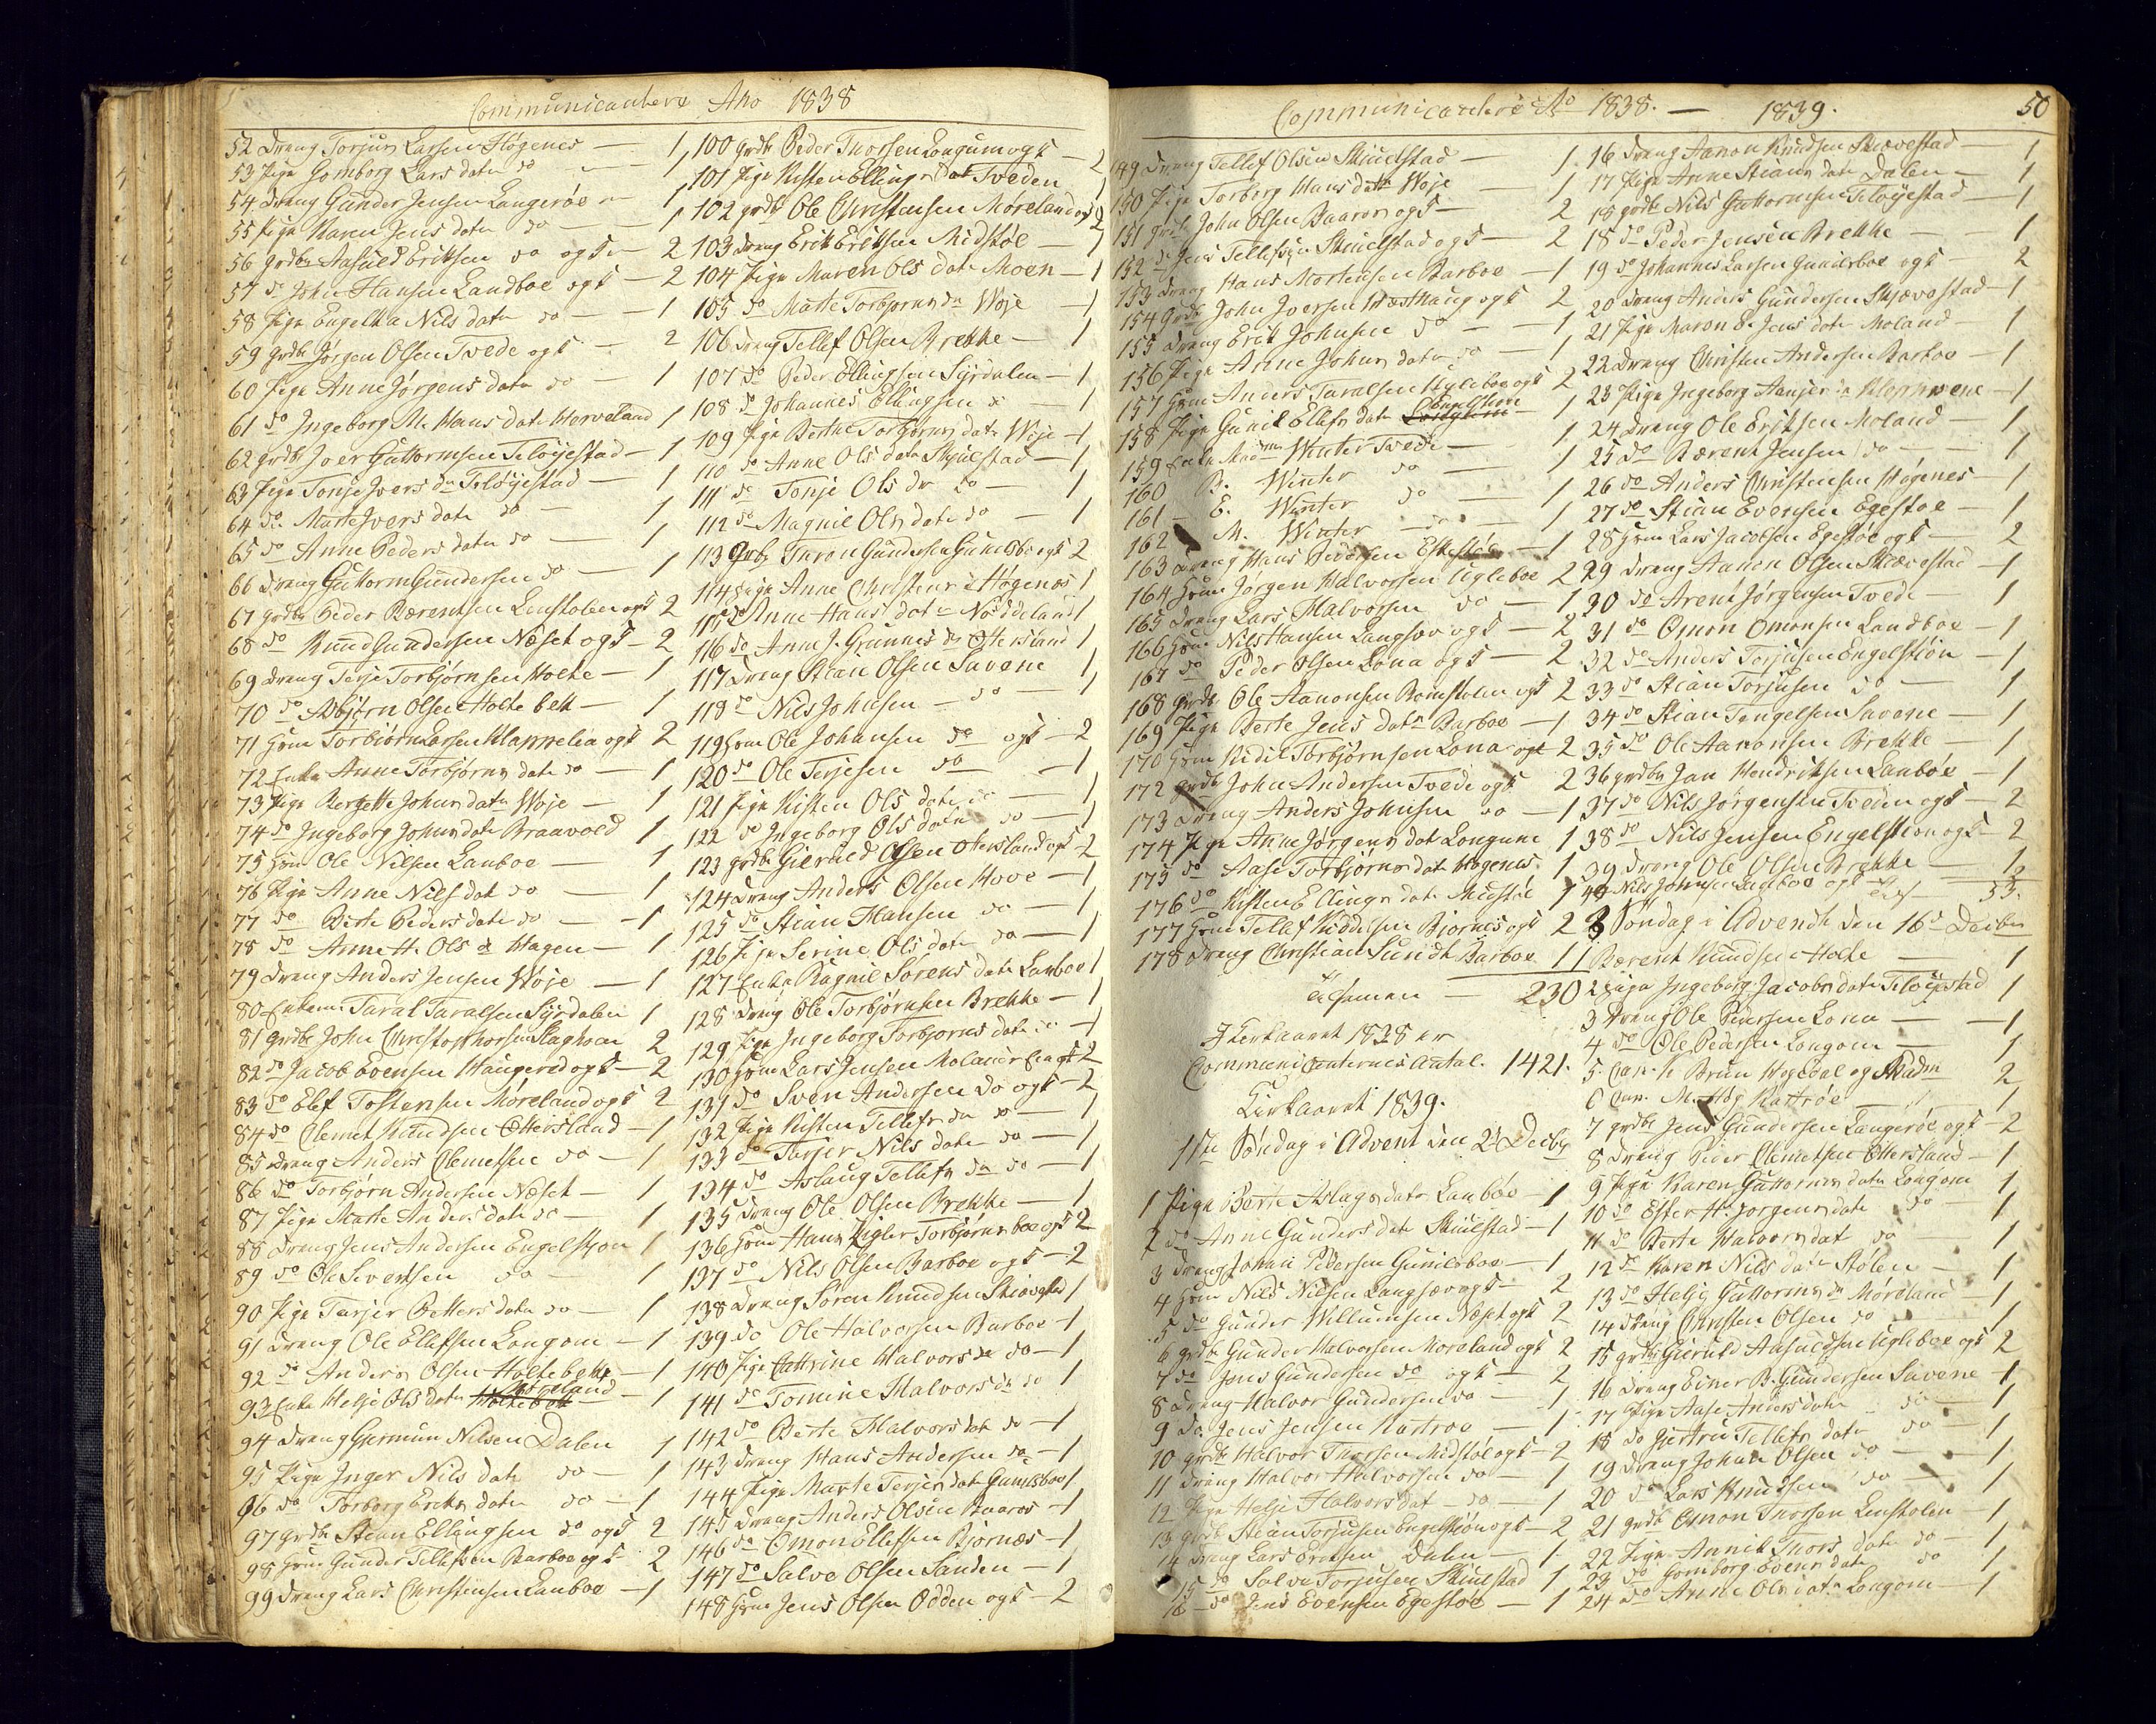 Communicantere Aṅo 1838
52 Dreng Torjus Larsen Høgenes — 1
53 Pige Gomborg Lars dater do — 1
54 Dreng Gunder Jensen Langerøe — 1
55 Pige Karen Jens dater do — 1
56 grdbr Aasuld Eriksen do ogk — 2
57 do John Hansen Landboe ogk — 2
58 Pige Engelka Nils dater do — 1
59 grdbr Jørgen Olsen Tvede ogk — 2
60 Pige Anne Jørgens dater do — 1
61 do Ingeborg M. Hans dat Herveland 1
62 grdbr Joer Guttormsen Teløyestad — 1
63 Pige Tonje Jvers dr Teløyestad — 1
64 do Marte Jvers dater do — 1
65 do Anne Peders dater do — 1
66 Dreng Guttorm Gundersen do — 1
67 grdbr Peder Bærentsen Lenstolen ogk 2
68 do Knud Gundersen Næset ogk — 2
69 Dreng Terje Torbjørnsen Holte — 1
70 do Asbjørn Olsen Holtebek — 1
71 Hsm Torbiørn Larsen Klappelia ogk 2
72 Enke Anne Torbjørns dater do — 1
73 Pige Bergette Johns dater Woje — 1
74 do Ingeborg Johns dater Braavold 1
75 Hsm Ole Nilsen Lanboe — 1
76 Pige Anne Nils dat do — 1
77 do Berte Peders dater do — 1
78 do Anne H. Ols dr Hagen — 1
79 Dreng Anders Jensen Wøje — 1
80 Enkem. Taral Taralsen Syrdalen 1
81 grdbr John Christophersen 2
82 do Jacob Evensen Haugered ogk — 2
83 do Elef Tostensen Møreland ogk 2
84 do Clemet Knudsen Ottersland — 1
85 Dreng Anders Clemetsen do — 1
86 do Torbjørn Andersen Næset — 1
87 Pige Marte Anders dater do — 1
88 Dreng Jens Andersen Engelstjon 1
89 do Ole Severtsen do — 1
90 Pige Tarjer Petters dater do — 1
91 Dreng Ole Ellefsen Longom — 1
92 do Anders Olsen Holtebek — 1
93 Enke Helje Ols dater Møreland — 1
94 Dreng Gjermun Nilsen Dalen 1
95 Pige Inger Nils dater do — 1
96 do Torborg Eriks dater do — 1
97 grdbr Stian Ellingsen do ogk 2
98 Hsm Gunder Tellefsen Barboe ogk 2
99 Dreng Lars Christensen Lanboe — 1
100 grdbr Peder Thorsen Longum ogk — 2
101 Pige Kisten Ellings dat Tveden 1
102 grdbr Ole Christensen Møreland ogk 2
103 Dreng Erik Eriksen Midstøe — 1
104 Pige Maren Ols dater Moen — 1
105 do Marte Torbjørns dr Woje — 1
106 Dreng Tellef Olsen Brekke — 1
107 do Peder Ellingsen Syrdalen — 1
108 do Johannes Ellingsen do — 1
109 Pige Berthe Torbjørns dater Woje — 1
110 do Anne Ols dater Skjulstad — 1
111 do Tonje Ols dr do — 1
112 do Magnil Ols dater do — 1
113 Grbr Taron Gundersen Gunildsboe ogk 2
114 Pige Anne Christens dr Høgenes 1
115 do Anne Hans dater Nøddeland 1
116 do Anne J. Grunnes dr Ottersland 1
117 Dreng Stean Olsen Savene 1
118 do Nils Johnsen — do — 1
119 Hsm Ole Johansen do ogk — 2
120 do Ole Terjesen do — 1
121 Pige Kisten Ols dater do — 1
122 do Ingeborg Ols dater do — 1
123 grdbr Gieruld Olsen Otersland ogk 2
124 Dreng Anders Olsen Hove — 1
125 do Stian Hansen do — 1
126 Pige Serine Ols dater do — 1
127 Enke Ragnil Sørens dater Lanboe 1
128 Dreng Ole Torbjørnsen Brekke — 1
129 Pige Ingeborg Torbjørns dater do — 1
130 Hsm Lars Jensen Molands ogk 2
131 do Sven Andersen do ogk — 2
132 Pige Kisten Tellefs dr do — 1
133 do Tarjer Nils dater do — 1
134 do Aslaug Tellefs dr do — 1
135 Dreng Ole Olsen Brekke — 1
136 Hsm Hans Torbjørnsboe ogk 2
137 do Nils Olsen Barboe ogk — 2
138 Dreng Søren Knudsen Skiøvestad 1
139 do Ole Halvorsen Barboe — 1
140 Pige Cathrine Halvors dr do — 1
141 do Tomine Halvors dr do 1
142 do Berte Halvors dat do — 1
143 Dreng Hans Andersen do — 1
144 Pige Marte Terjes dat Gunildsboe 1
145 Dreng Anders Olsen Baaros — 1
146 do Omon Ellefsen Bjornæs — 1
147 do Salve Olsen Sanden — 1
148 Hsm Jens Olsen Odden ogk — 2
Communicantere Ao 1838. — 1839. 50
149 Dreng Tellef Olsen Skiulstad — 1
150 Pige Torborg Hans dater Woje — 1
151 grdbr John Olsen Baaros ogk — 2
152 do Jens Tellefsen Skiulstad ogk — 2
153 Dreng Hans Mortensen Barboe — 1
154 Grdbr John Iversen Wæsthaug ogk 2
155 Dreng Erik Johnsen do — 1
156 Pige Anne Johns dater do — 1
157 Hsm Anders Taralsen Ugleboe ogk 2
158 Pige Gunil Ellefs dater Engelstion 1
159 Enke Madme Winter Tvede — 1
160 B. Winter do — 1
161 — E. Winter do — 1
162 M. Winter — do — 1
163 Dreng Hans Pedersen — 1
164 Hsm Jørgen Halvorsen Ugleboe 2
165 Dreng Lars Halvorsen do — 1
166 Hsm Nils Hansen Langsæv ogk — 2
167 do Peder Olsen Lona ogk — 2
168 Grdbr Ole Aanonsen Romstolen ogk 2
169 Pige Berte Jens dater Barboe — 1
170 Hsm Kidil Torbjørnsen Lona ogk 2
172 Grdbr John Andersen Tvede ogk 2
173 Dreng Anders Johnsen do — 1
174 Pige Anne Jørgens dat Longum 1
175 do Aase Torbjørns dat Høgenes 1
176 do Kisten Ellings dater Midstøe 1
177 Hsm Tellef Kiddelsen Bjornes ogk 2
178 Dreng Christian Sundt Barboe 1
Tilsamen — 230
I Kirkaaret 1838 er
Communicanternes Antal. 1421.
Kirkaaret 1839.
1ste Søndag i Advent den 2d Decbr
1 Pige Børte Aslags dater Lanboe — 1
2 do Anne Gunders dat Skiulstad — 1
3 Dreng Johan Pedersen Gunildsboe — 1
4 Hsm Nils Nilsen Langsæv ogk — 2
5 do Gunder Willumsen Næset ogk 2
6 grdbr Gunder Halvorsen Moreland ogk 2
7 do Jens Gundersen do ogk — 2
8 Dreng Halvor Gundersen do — 1
9 do. Jens Jensen Kastroe — 1
10 grdbr Halvor Thorsen Midstøl ogk — 2
11 Dreng Halvor Halvorsen do — 1
12 Pige Helje Halvors dat — do — 1
13 grdbr Stian Torjusen Engelstion ogk — 2
14 Dreng Lars Eriksen Dalen — 1
15 do Salve Torjusen Skiulstad 1
16 — do Jens Evensen Egestøe — 1
16 Dreng Aanon Knudsen Skiævestad — 1
17 Pige Anne Stians dater Dalen — 1
18 grdbr Nils Guttormsen Teløyestad — 1
18 do Peder Jensen Brekke — 1
19 do Johannes Larsen Gunildsboe ogk — 2
20 Dreng Anders Gundersen Skjævestad — 1
21 Pige Maren E. Jens dater Moland — 1
22 Dreng Christen Andersen Barboe — 1
23 Pige Ingeborg dr Kleppene — 1
24 Dreng Ole Eriksen Moland — 1
25 do Bærent Jensen do — 1
26 do Anders Christensen Høgenes — 1
27 do Stian Evensen Egestøe — 1
28 Hsm Lars Jacobsen Egestøe ogk — 2
29 Dreng Aanon Olsen Skiævestad — 1
30 do Arent Jørgensen Tvede — 1
31 do Omon Omonsen Landboe — 1
32 do Anders Torjusen Engelstiøn — 1
33 do Stian Torjusen do — 1
34 do Stian Tengelsen Savene — 1
35 do Ole Aanonsen Brekke — 1
36 grdbr Jan Hendriksen Lanboe — 1
37 do Nils Jørgensen Tveden ogk — 2
38 do Nils Jensen Engelstion ogk — 2
39 Dreng Ole Olsen Brekke — 1
40 Nils Johnsen Lanboe ogk — 2
53.
3 Søndag i Advendt den 16d Decbr
1 Bærent Knudsen Holte — 1
2 Pige Ingeborg Jacobs dater Teløyestad 1
3 Dreng Ole Pedersen Lona — 1
4 do Ole Pedersen Longom — 1
5 Brun og Madm 2
6 M. Kastrøe — 1
7 grdbr Jens Gundersen Langerøe ogk — 2
8 Dreng Peder Clemetsen Ottersland — 1
9 Pige Karen Guttorms dater Longom 1
10 do Ester H. Jorgens dater do — 1
11 do Berte Halvors dat do 1
12 do Karen Nils dater Stølen — 1
13 do Helje Guttorms dr Møreland — 1
14 Dreng Christen Olsen do — 1
15 grdbr Gieruld Aasuldsen Ugleboe ogk 2
16 Dreng Einer B. Gundersen Savene — 1
17 Pige Aase Anders dater do — 1
18 do Gjertru Tellefs dater do — 1
19 Dreng Johan Olsen do — 1
20 do Lars Knudsen do — 1
21 grdbr Omon Thorsen Lenstolen — 1
22 Pige Annik Thors dater do — 1
23 do Gomborg Evens dater do 1
24 do Anne Ols dater Longom — 1